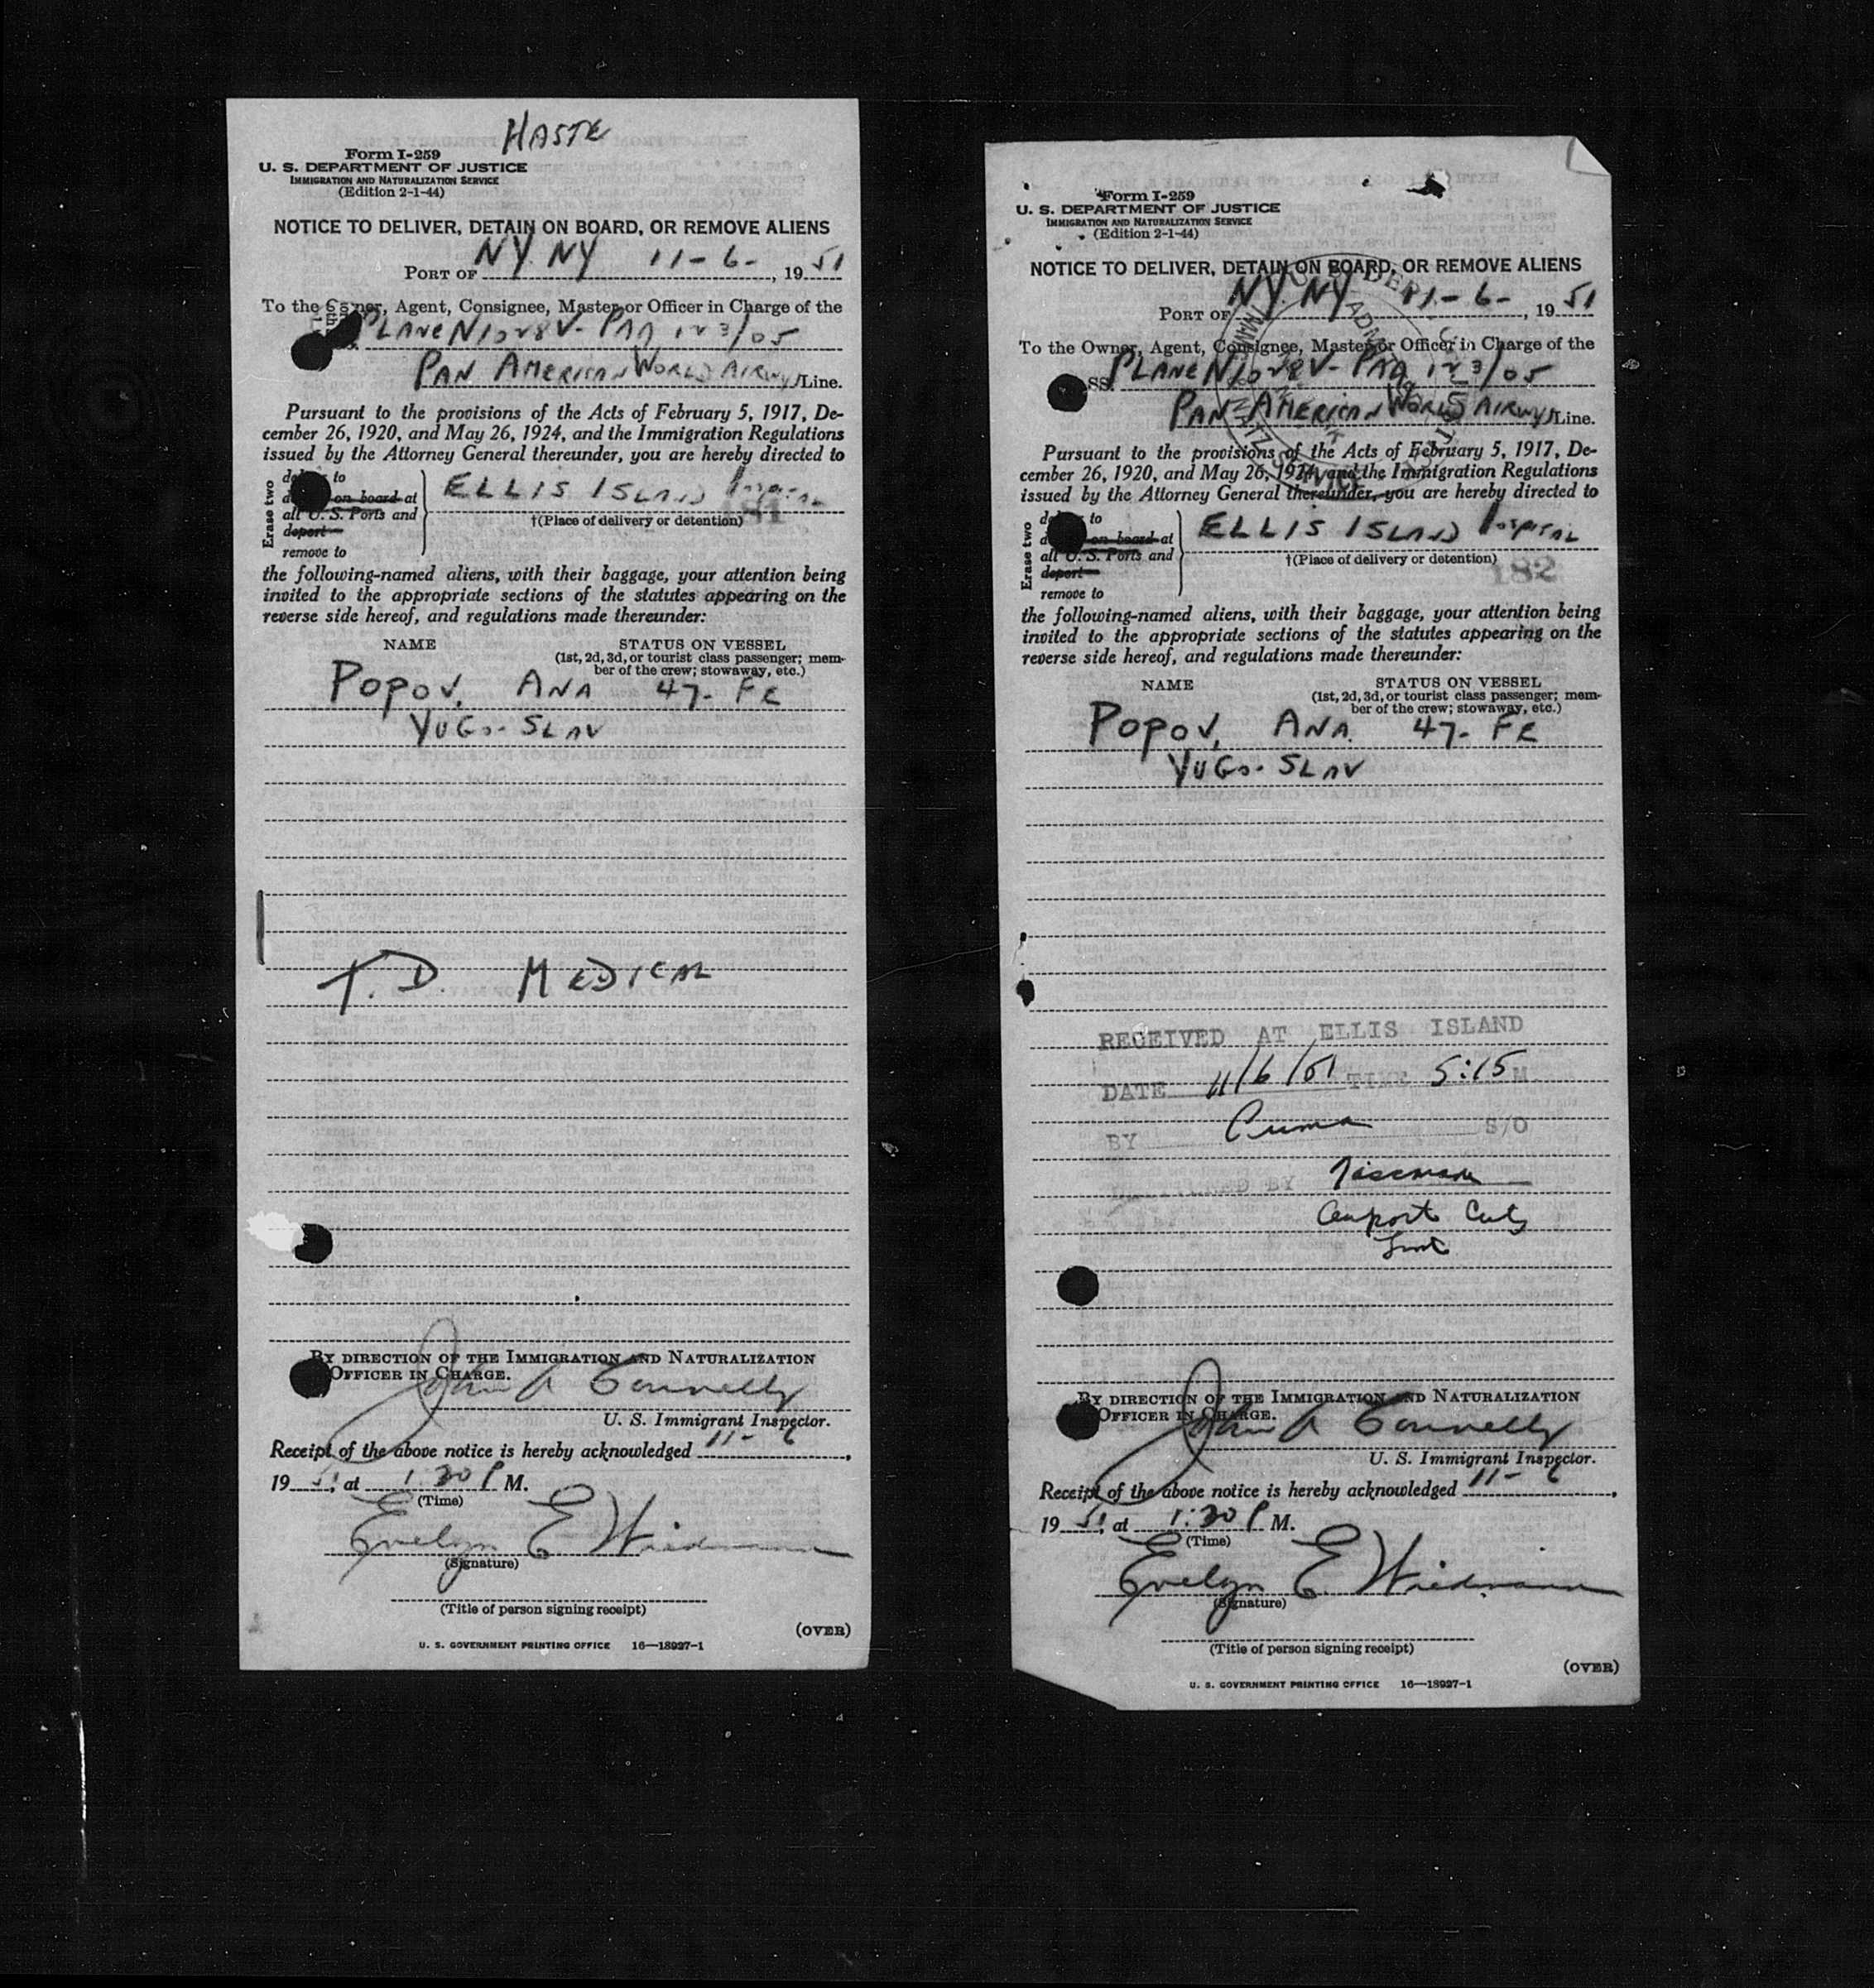 HASTE
Form I-259
U. S. DEPARTMENT OF JUSTICE
IMMIGRATION AND NATURALIZATION SERVICE
(Edition 2-1-44)
NOTICE TO DELIVER, DETAIN ON BOARD, OR REMOVE ALIENS
PORT OF NY. NY 11-6-, 19 51
To the Owner, Agent, Consignee, Master or Officer in Charge of the
PLANE N1028V - PAA 123/05
PAN AMERICAN WORLD AIRWYS Line.
Pursuant to the provisions of the Acts of February 5, 1917, De-
cember 26, 1920, and May 26, 1924, and the Immigration Regulations
issued by the Attorney General thereunder, you are hereby directed to
Erase two
to
on board at
all U. S. Ports and
deport
remove to
ELLIS ISLAND HOSPITAL
181
†(Place of delivery or detention)
the following-named aliens, with their baggage, your attention being
invited to the appropriate sections of the statutes appearing on the
reverse side hereof, and regulations made thereunder:
NAME STATUS ON VESSEL
(1st, 2d, 3d, or tourist class passenger; mem-
ber of the crew; stowaway, etc.)
POPOV, ANA 47- FE
YUGO-SLAV
T. D. MEDICAL
BY DIRECTION OF THE IMMIGRATION AND NATURALIZATION
OFFICER IN CHARGE.
John A Connelly
U. S. Immigrant Inspector.
Receipt of the above notice is hereby acknowledged 11-6,
19 51, at 1:30 P M.
(Time)
Evelyn E Wiedmann
(Signature)
(Title of person signing receipt)
(OVER)
U. S. GOVERNMENT PRINTING OFFICE 16—18927-1
Form I-259
U. S. DEPARTMENT OF JUSTICE
IMMIGRATION AND NATURALIZATION SERVICE
(Edition 2-1-44)
NOTICE TO DELIVER, DETAIN ON BOARD, OR REMOVE ALIENS
PORT OF NY. NY 11-6-, 19 51
To the Owner, Agent, Consignee, Master or Officer in Charge of the
SS. PLANE N1028V - PAA 123/05
PAN AMERICAN WORLD AIRWYS Line.
Pursuant to the provisions of the Acts of February 5, 1917, De-
cember 26, 1920, and May 26, 1924, and the Immigration Regulations
issued by the Attorney General thereunder, you are hereby directed to
Erase two
to
on board at
all U. S. Ports and
deport
remove to
ELLIS ISLAND HOSPITAL
†(Place of delivery or detention)
182
the following-named aliens, with their baggage, your attention being
invited to the appropriate sections of the statutes appearing on the
reverse side hereof, and regulations made thereunder:
NAME STATUS ON VESSEL
(1st, 2d, 3d, or tourist class passenger; mem-
ber of the crew; stowaway, etc.)
POPOV, ANA. 47- FE
YUGO-SLAV
RECEIVED AT ELLIS ISLAND
DATE 11/6/51 TIME 5:15 M.
BY S/O
BY
BY DIRECTION OF THE IMMIGRATION AND NATURALIZATION
OFFICER IN CHARGE.
John A Connelly
U. S. Immigrant Inspector.
Receipt of the above notice is hereby acknowledged 11-6,
19 51, at 1:30 P M.
(Time)
Evelyn E. Wiedmann
(Signature)
(Title of person signing receipt)
(OVER)
U. S. GOVERNMENT PRINTING OFFICE 16—18927-1